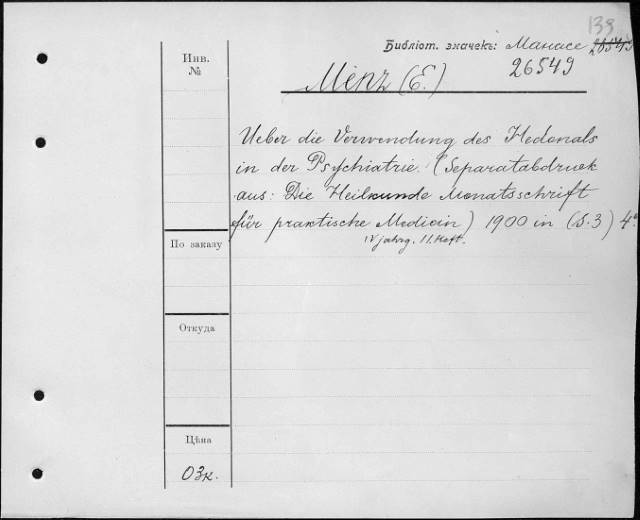 139
Библіот. значекъ: Манасе 26543
26549
Инв.
№
Menz (E.)
Ueber die Verwendung des Hedonals
in der Psychiatrie. (Separatabdruck
aus: Die Heilkunde Monatsschrift
für praktische Medicin) 1900 in (S. 3) 4°
IV jahrg. 11. Heft.
По заказу
Откуда
Цѣна
03к.